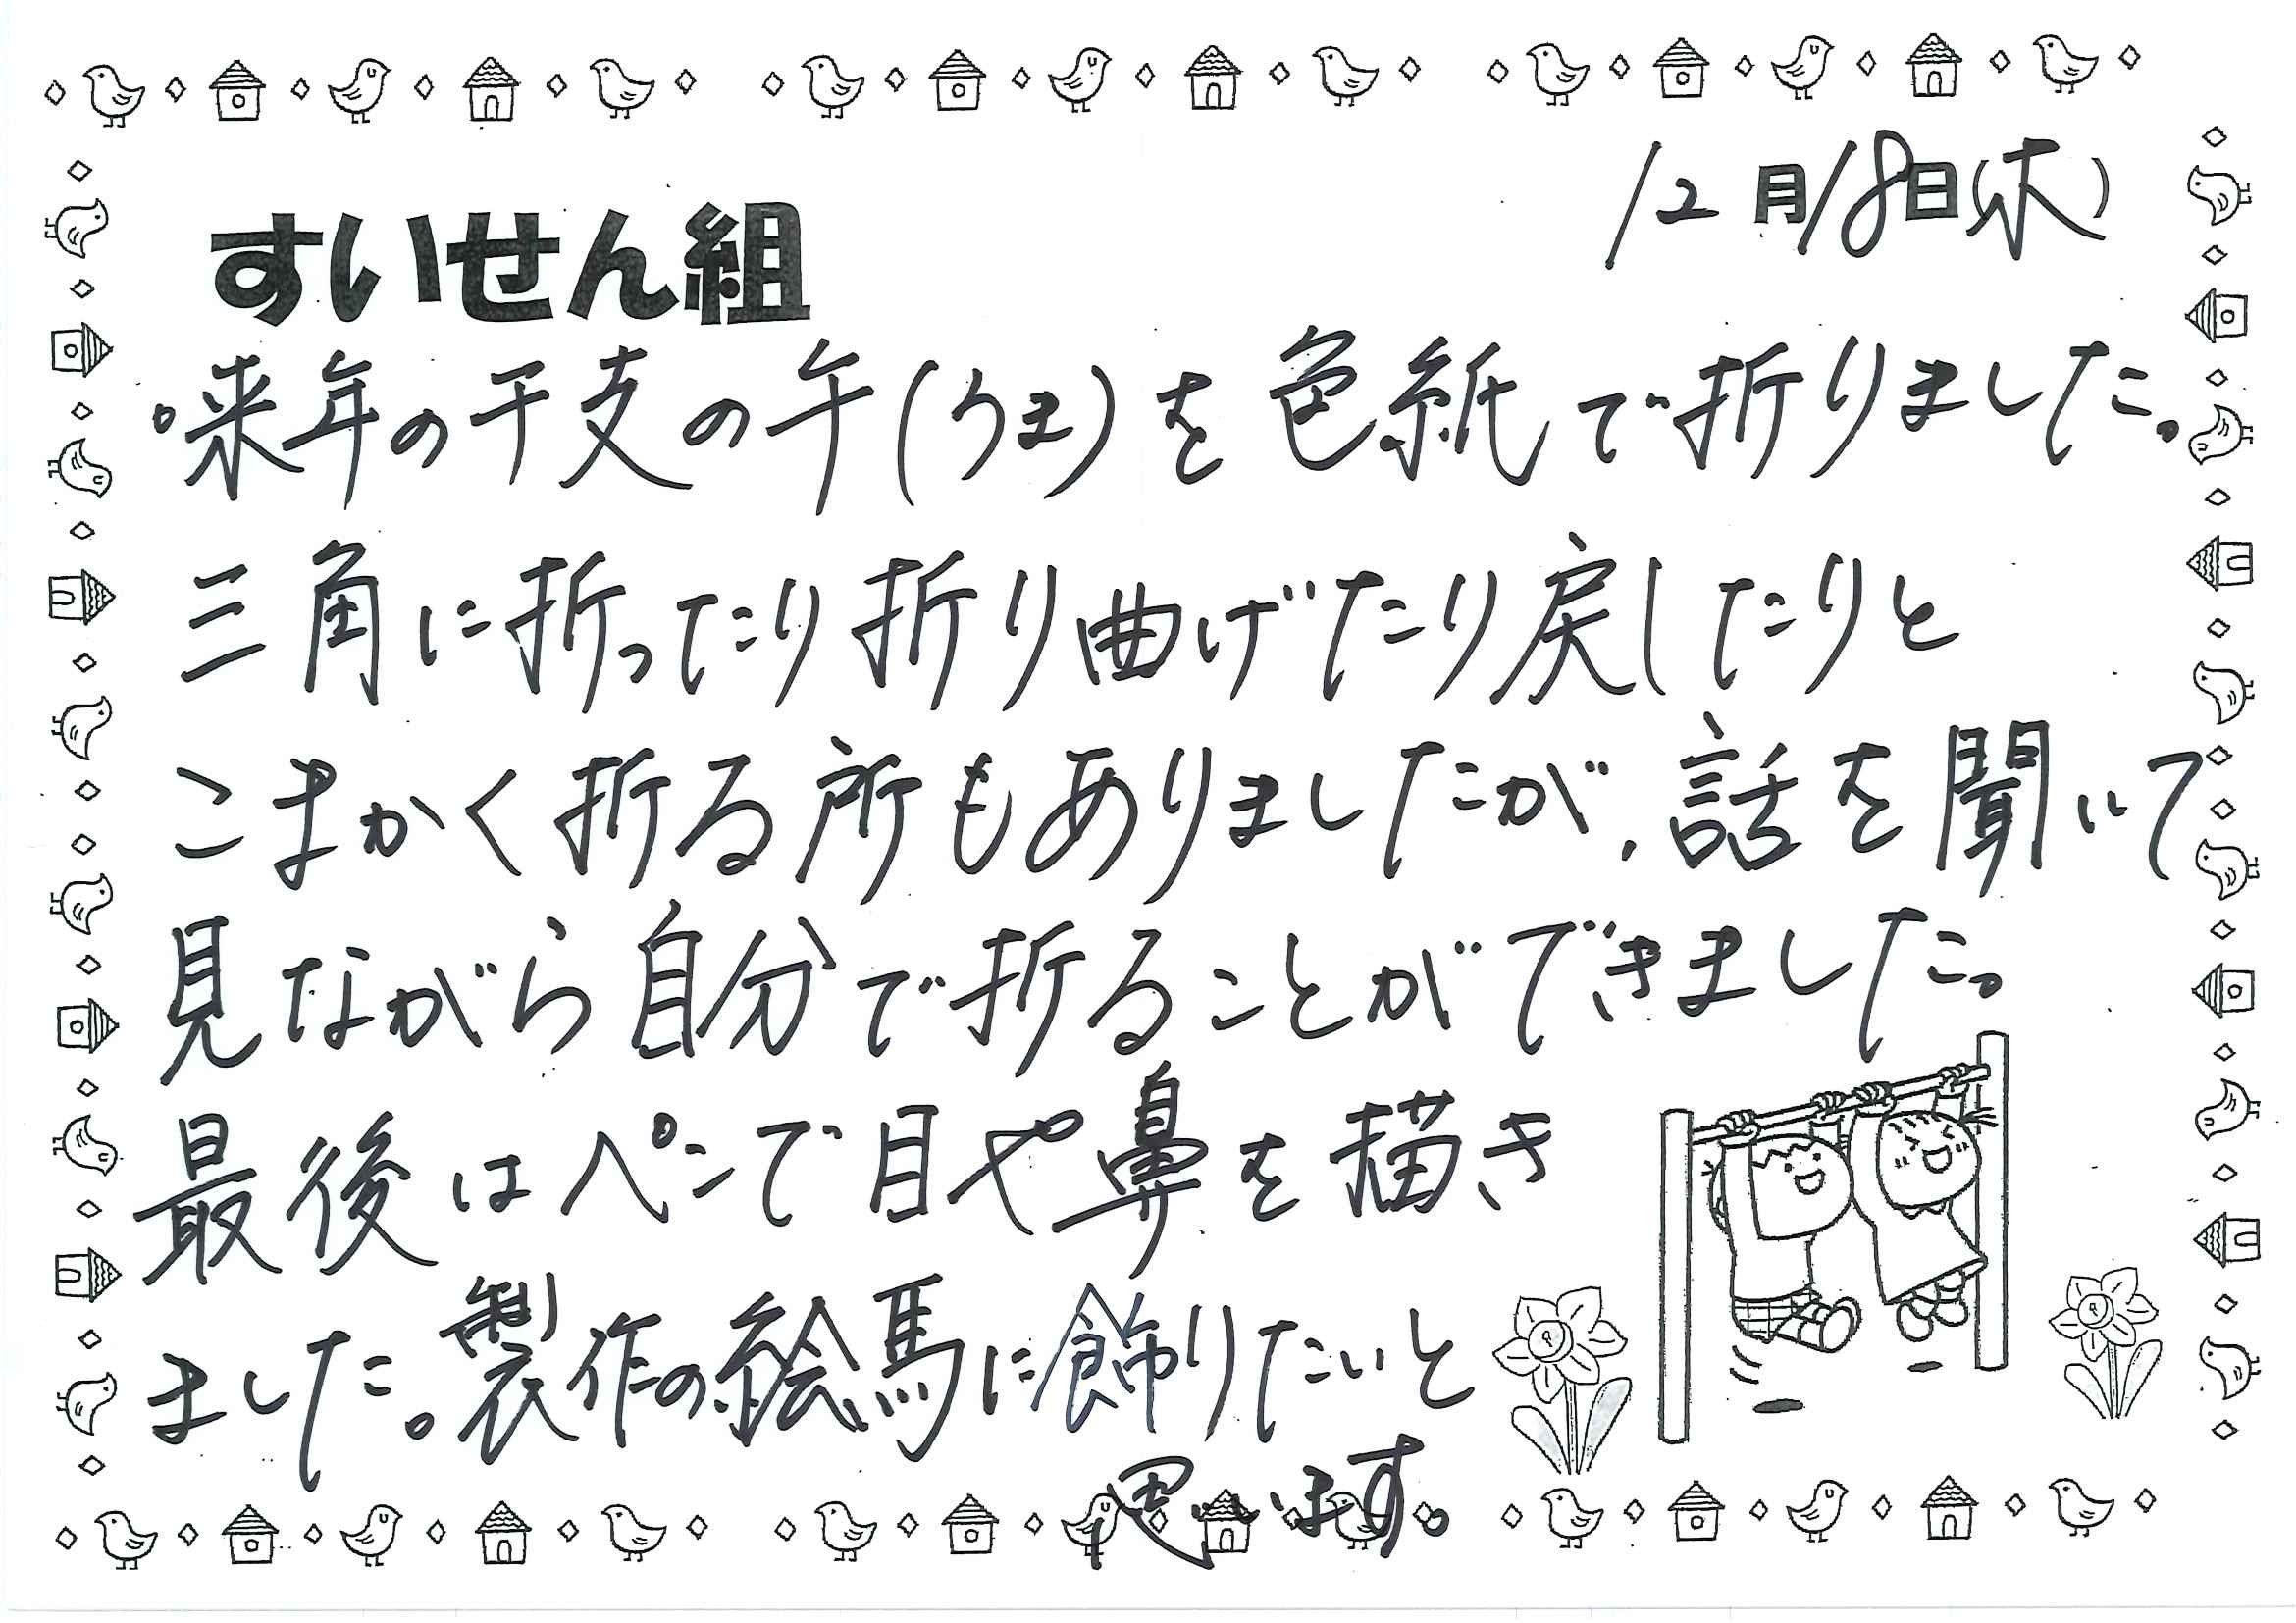 12月18日(木)
すいせん組
。来年の干支の午(うま)を色紙で折りました。
三角に折ったり折り曲げたり戻したりと
こまかく折る所もありましたが、話を聞いて
見ながら自分で折ることができました。
最後はペンで目や鼻を描き
ました。製作の絵馬に飾りたいと
思います。